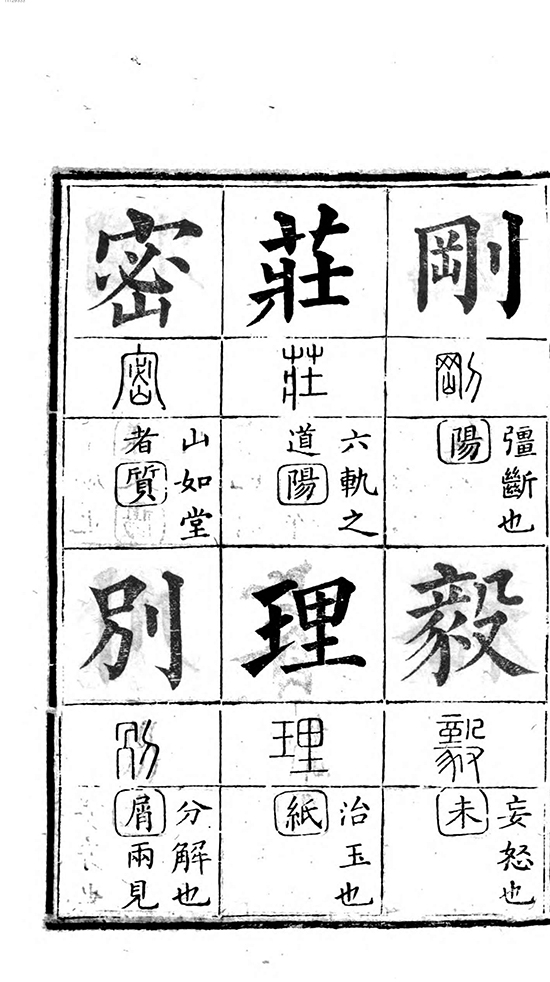 剛
剛
彊斷也
陽
毅
毅
妄怒也
未
莊
莊
六軌之
道陽
理
理
治玉也
紙
密
密
山如堂
者質
別
別
分解也
屑兩見